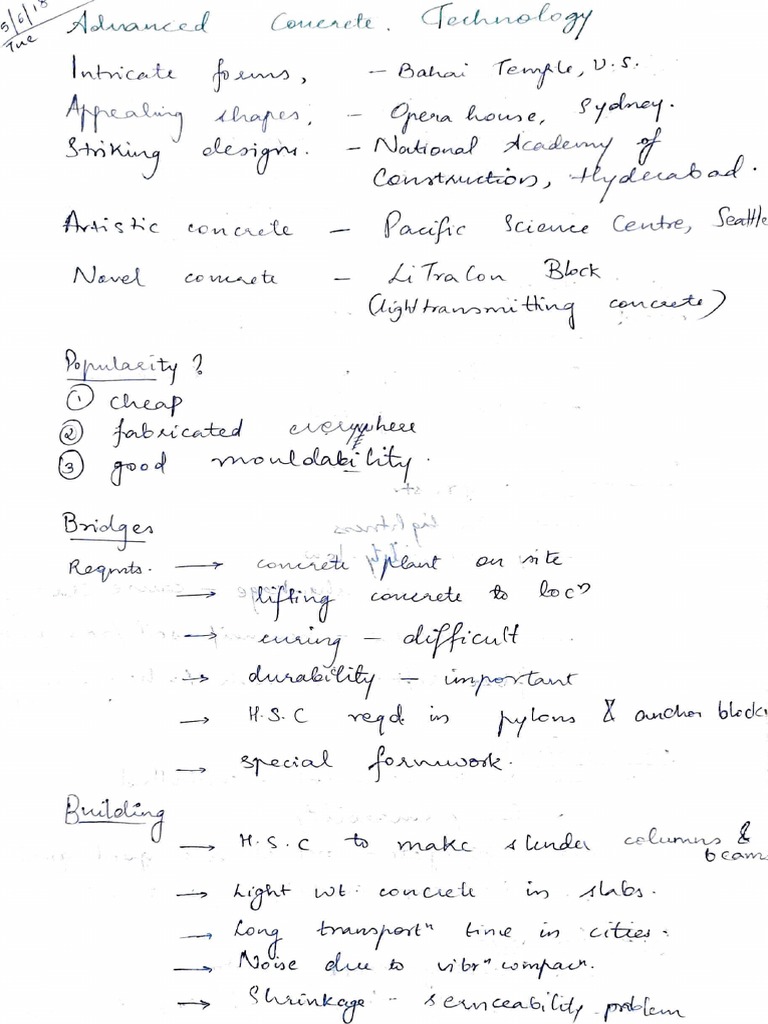 5/6/18
Tue
Advanced Concrete Technology
Intricate forms, - Bahai Temple, U.S.
Appealing shapes, - Opera house, Sydney.
Striking designs. - National Academy of
Construction, Hyderabad.
Artistic concrete - Pacific Science Centre, Seattle
Novel concrete - LiTraCon Block
(light transmitting concrete)
Popularity ?
① cheap
② fabricated everywhere
③ good mouldability.
Bridges
Reqmts. → concrete plant on site
→ lifting concrete to locⁿ
→ curing - difficult
→ durability - important
→ H.S.C reqd. in pylons & anchor block
→ special formwork.
Building
→ H.S.C to make slender columns &
beams
→ Light wt. concrete in slabs.
→ Long transportⁿ time in cities.
→ Noise due to vibrⁿ compacⁿ.
→ Shrinkage - serviceability problem